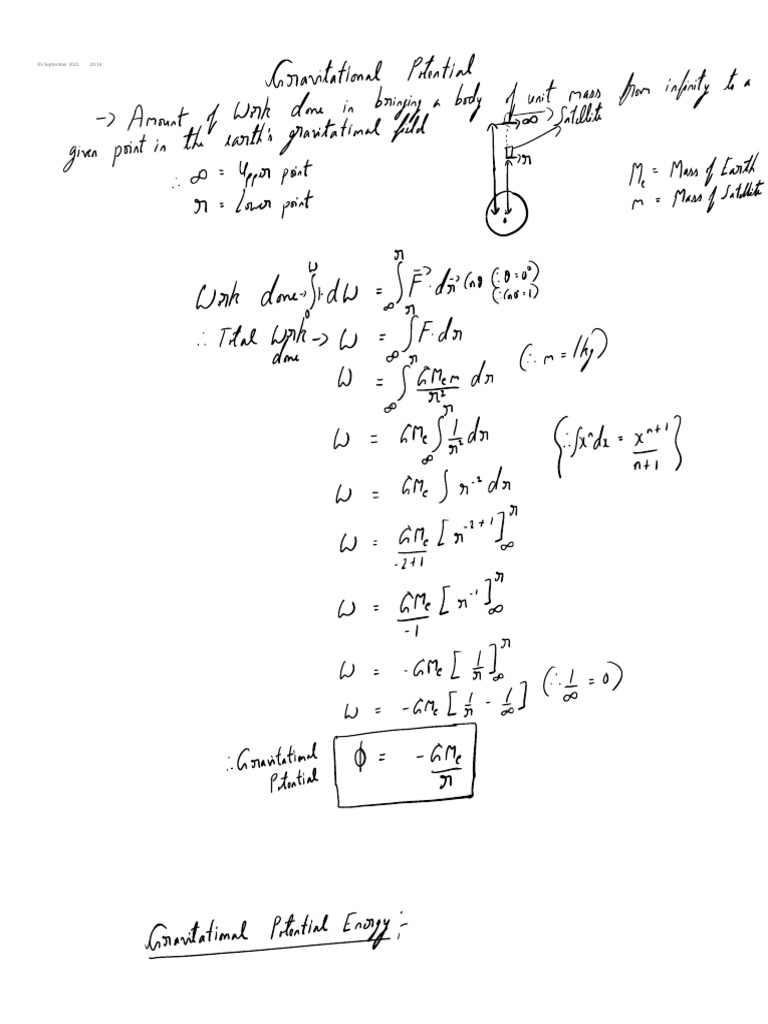 05 September 2021 20:14
Gravitational Potential
-> Amount of Work done in bringing a body of unit mass from infinity to a
given point in the earth's gravitational field
∴ ∞ = Upper point
r = Lower point
->∞
Satellite
->r
Me = Mass of Earth
m = Mass of Satellite
Work done -> ∫₀^W 1·dW = ∫_∞^r F⃗·dr⃗ cosθ (∵ θ = 0°) (∵ cosθ = 1)
∴ Total Work done -> W = ∫_∞^r F·dr
W = ∫_∞^r GMem/r² dr (∵ m = 1kg)
W = GMe ∫_∞^r 1/r² dr {∵ ∫xⁿdx = xⁿ⁺¹/n+1}
W = GMe ∫ r⁻² dr
W = GMe/-2+1 [r⁻²⁺¹]_∞^r
W = GMe/-1 [r⁻¹]_∞^r
W = -GMe [1/r]_∞^r
W = -GMe [1/r - 1/∞] (∵ 1/∞ = 0)
∴ Gravitational Potential ϕ = -GMe/r
Gravitational Potential Energy :-